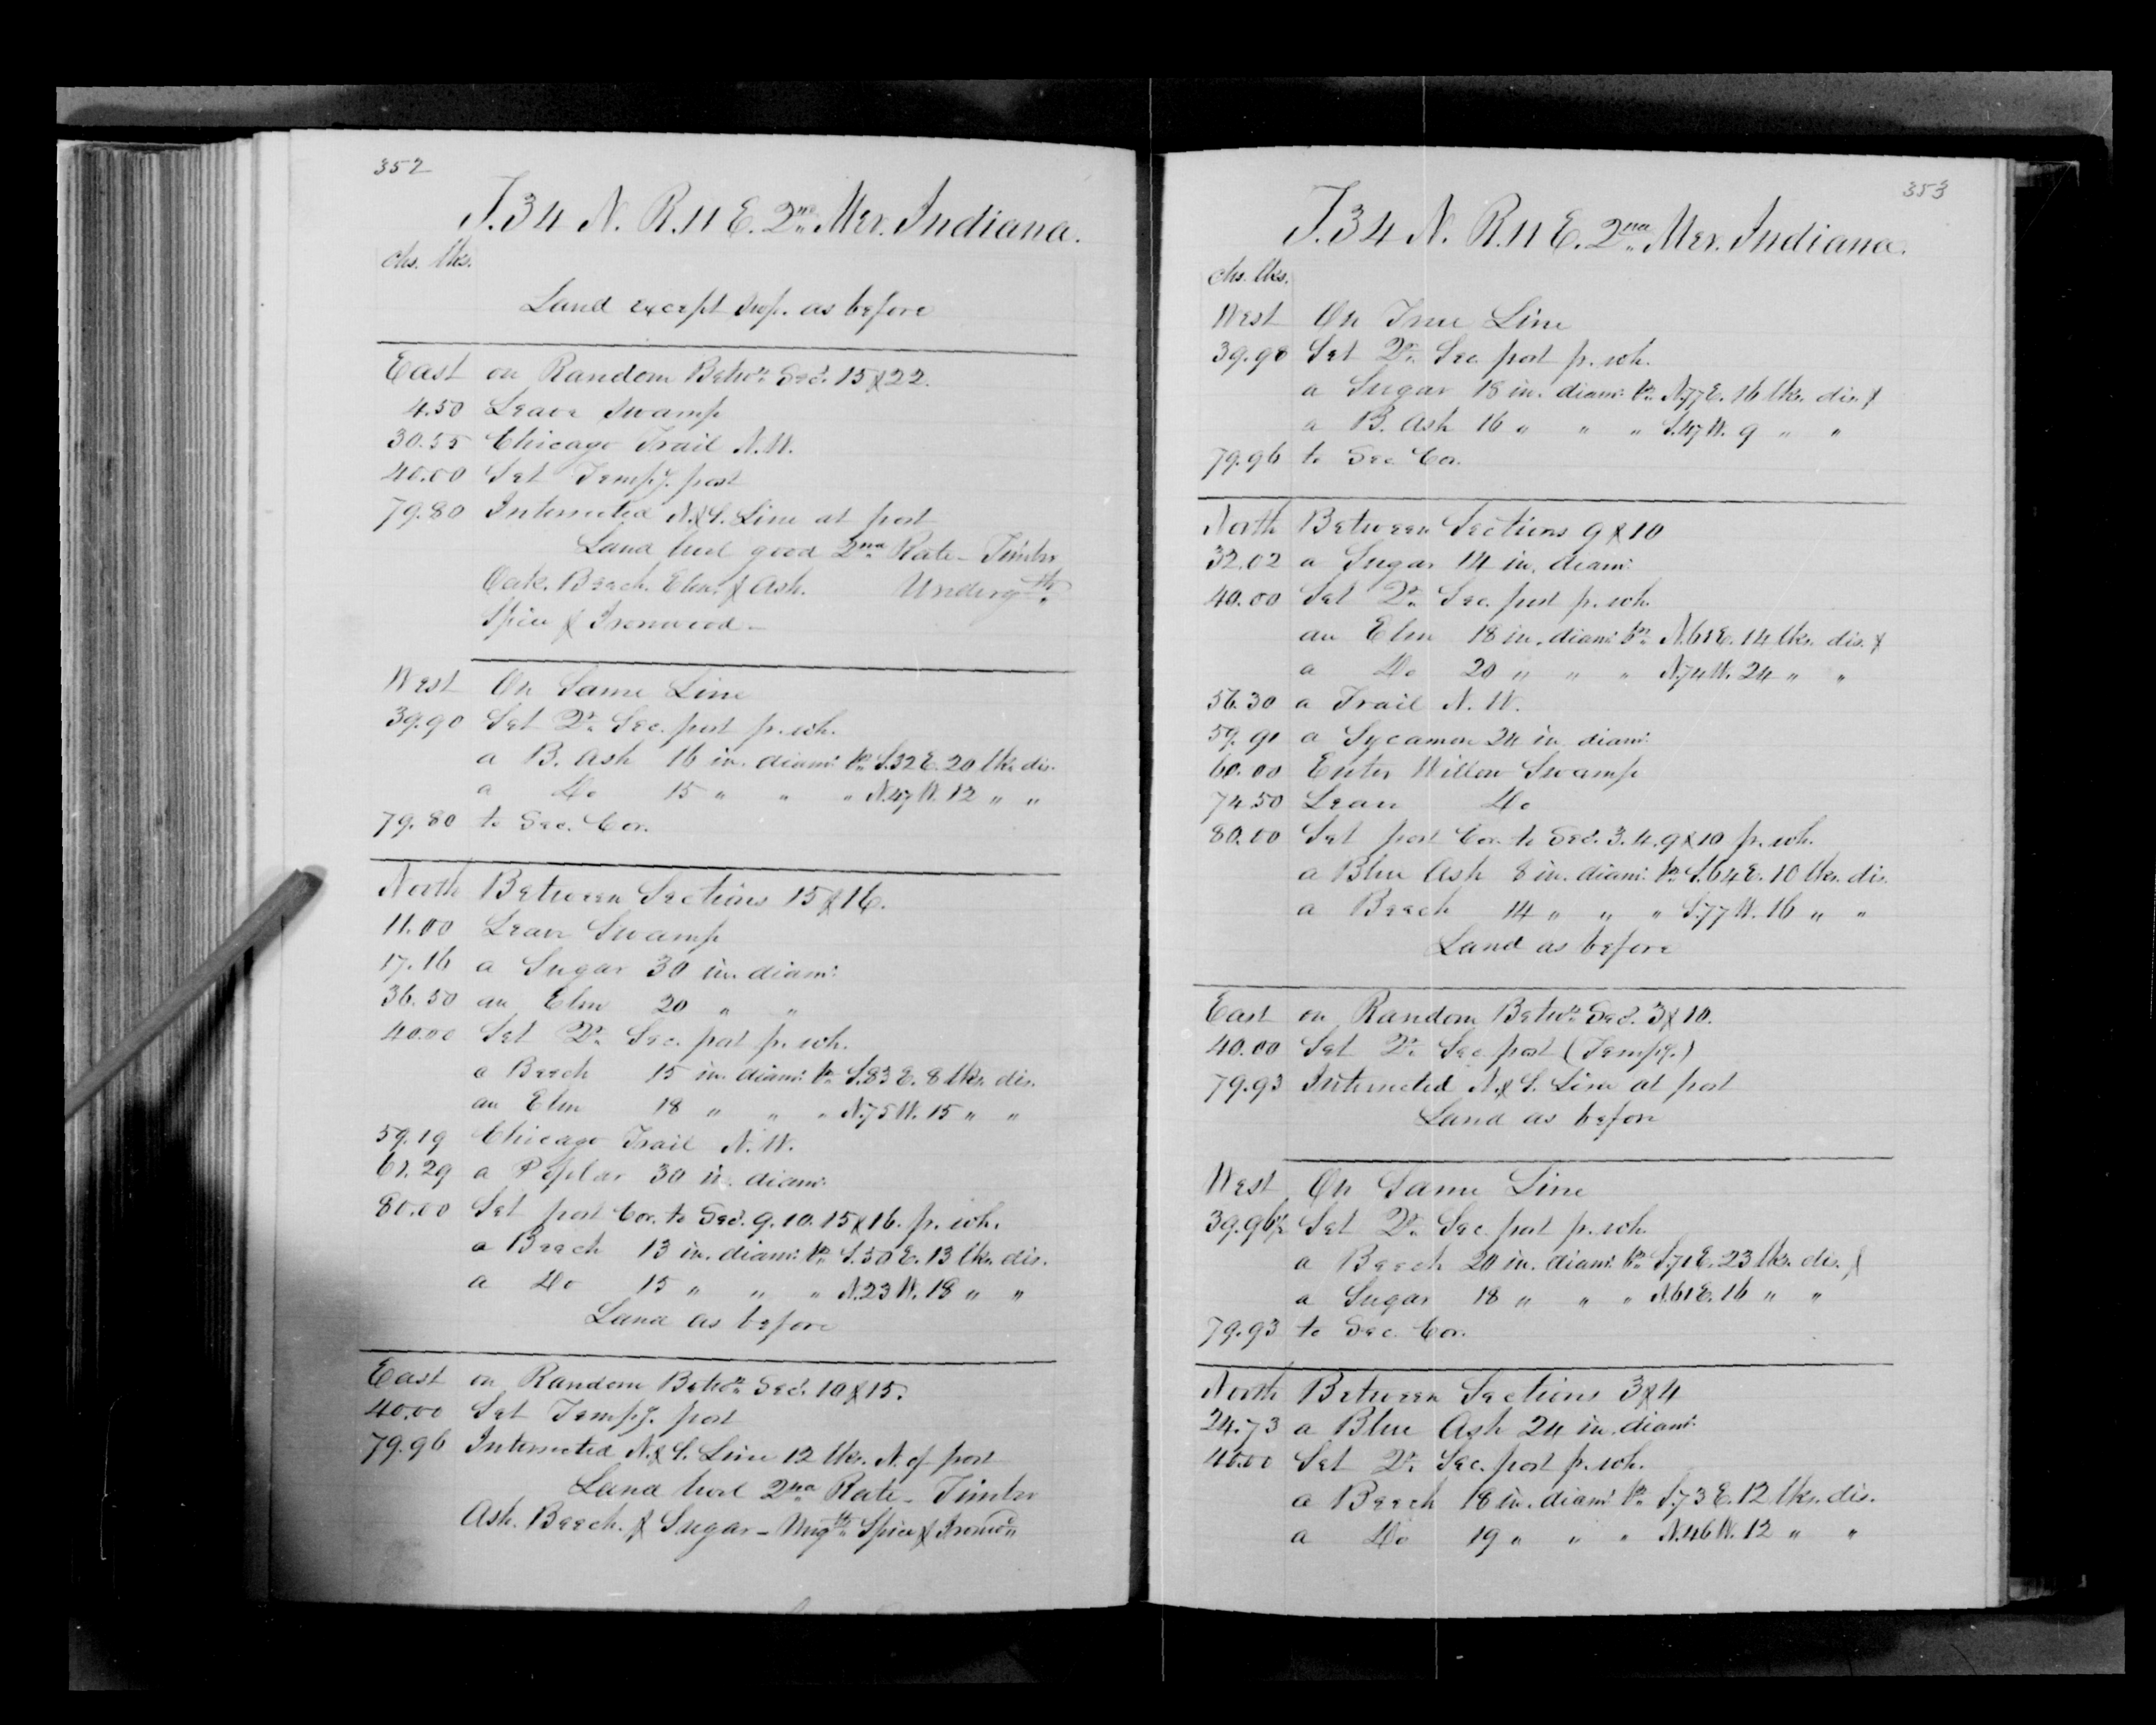 352
T. 34 N. R. 11 E. 2nd Mer. Indiana.
chs. lks.
Land except swp. as before
East on Random Betwn. Secs. 15 & 22.
4.50 Leave Swamp
30.55 Chicago Trail N.W.
40.00 Set Tempy. post
79.80 Intersected N. & S. Line at post
Land level good 2nd Rate - Timber
Oak. Beech. Elm. & Ash. Undergth.
Spice & Ironwood -
West On Same Line
39.90 Set Qr. Sec. post fr. wh.
a B. Ash 16 in. diam. br. S. 32 E. 20 lks. dis.
a Do 15 " " " N. 47 W. 12 " "
79.80 to Sec. Cor.
North Between Sections 15 & 16.
11.00 Leave Swamp
17.16 a Sugar 30 in. diam.
36.50 an Elm 20 " "
40.00 Set Qr. Sec. post fr. wh.
a Beech 15 in. diam. br. S. 83 E. 8 lks. dis.
an Elm 18 " " " N. 75 W. 15 " "
59.19 Chicago Trail N.W.
61.29 a Poplar 30 in. diam.
80.00 Set post Cor. to Secs. 9. 10. 15 & 16. fr. wh.
a Beech 13 in. diam. br. S. 50 E. 13 lks. dis.
a Do 15 " " " N. 23 W. 18 " "
Land as before
East on Random Betwn. Secs. 10 & 15.
40.00 Set Tempy. post
79.96 Intersected N. & S. Line 12 lks. N. of post
Land level 2nd Rate - Timber
Ash. Beech. & Sugar - Ungth. Spice & Ironwd.
353
T. 34 N. R. 11 E. 2nd Mer. Indiana.
chs. lks.
West On True Line
39.98 Set Qr. Sec. post fr. wh.
a Sugar 18 in. diam. br. N. 77 E. 16 lks. dis. &
a B. Ash 16 " " " S. 47 W. 9 " "
79.96 to Sec. Cor.
North Between Sections 9 & 10
32.02 a Sugar 14 in. diam.
40.00 Set Qr. Sec. post fr. wh.
an Elm 18 in. diam. br. N. 61 E. 14 lks. dis. &
a Do 20 " " " N. 74 W. 24 " "
56.30 a Trail N. W.
59.91 a Sycamore 24 in. diam.
60.00 Enter Willow Swamp
74.50 Leave Do
80.00 Set post Cor. to Secs. 3. 4. 9 & 10 fr. wh.
a Blue Ash 8 in. diam. br. S. 64 E. 10 lks. dis.
a Beech 14 " " " S. 77 W. 16 " "
Land as before
East on Random Betwn. Secs. 3 & 10.
40.00 Set Qr. Sec. post (Tempy.)
79.93 Intersected N. & S. Line at post
Land as before
West On Same Line
39.96½ Set Qr. Sec. post fr. wh.
a Beech 20 in. diam. br. S. 71 E. 23 lks. dis. &
a Sugar 18 " " " N. 61 E. 16 " "
79.93 to Sec. Cor.
North Between Sections 3 & 4
24.73 a Blue Ash 24 in. diam.
40.00 Set Qr. Sec. post fr. wh.
a Beech 18 in. diam. br. S. 73 E. 12 lks. dis.
a Do 19 " " " N. 46 W. 12 " "